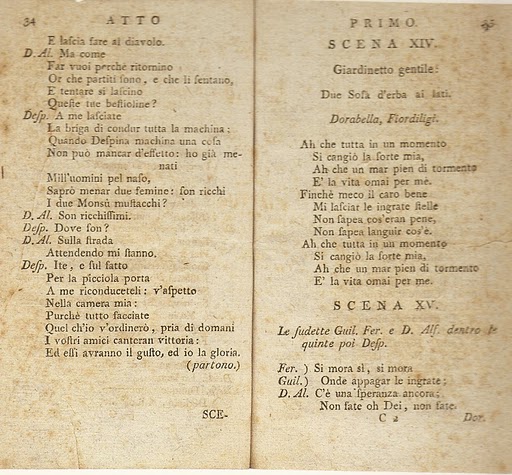 34 ATTO
E lascia fare al diavolo.
D. Al. Ma come
Far vuoi perchè ritornino
Or che partiti sono, e che li sentano,
E tentare si lascino
Queste tue bestioline?
Desp. A me lasciate
La briga di condur tutta la machina:
Quando Despina machina una cosa
Non può mancar d'effetto: ho già me-
nati
Mill'uomini pel naso,
Saprò menar due femine: son ricchi
I due Monsù mustacchi?
D. Al. Son ricchissimi.
Desp. Dove son?
D. Al. Sulla strada
Attendendo mi stanno.
Desp. Ite, e sul fatto
Per la picciola porta
A me riconduceteli: v'aspetto
Nella camera mia:
Purchè tutto facciate
Quel ch'io v'ordinerò, pria di domani
I vostri amici canteran vittoria:
Ed essi avranno il gusto, ed io la gloria.
(partono.)
SCE-
PRIMO. 35
SCENA XIV.
Giardinetto gentile:
Due Sofà d'erba ai lati.
Dorabella, Fiordiligi.
Ah che tutta in un momento
Si cangiò la sorte mia,
Ah che un mar pien di tormento
E' la vita omai per me.
Finchè meco il caro bene
Mi lasciar le ingrate stelle
Non sapea cos'eran pene,
Non sapea languir cos'è.
Ah che tutta in un momento
Si cangiò la sorte mia,
Ah che un mar pien di tormento
E' la vita omai per me.
SCENA XV.
Le sudette Guil. Fer. e D. Alf. dentro le
quinte poi Desp.
Fer. ) Si mora sì, si mora
Guil.) Onde appagar le ingrate;
D. Al. C'è una speranza ancora;
Non fate oh Dei, non fate.
C 2 Dor.